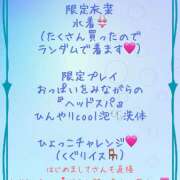 限定衣装
水着👙
(たくさん買ったので
ランダムで着ます💗)
限定プレイ
おっぱいをみながらの
『ヘッドスパ』
ひんやりcool泡🫧洗体
ひょっこチャレンジ💗
(くぐりイス🪑)
はじめましてさんも返極